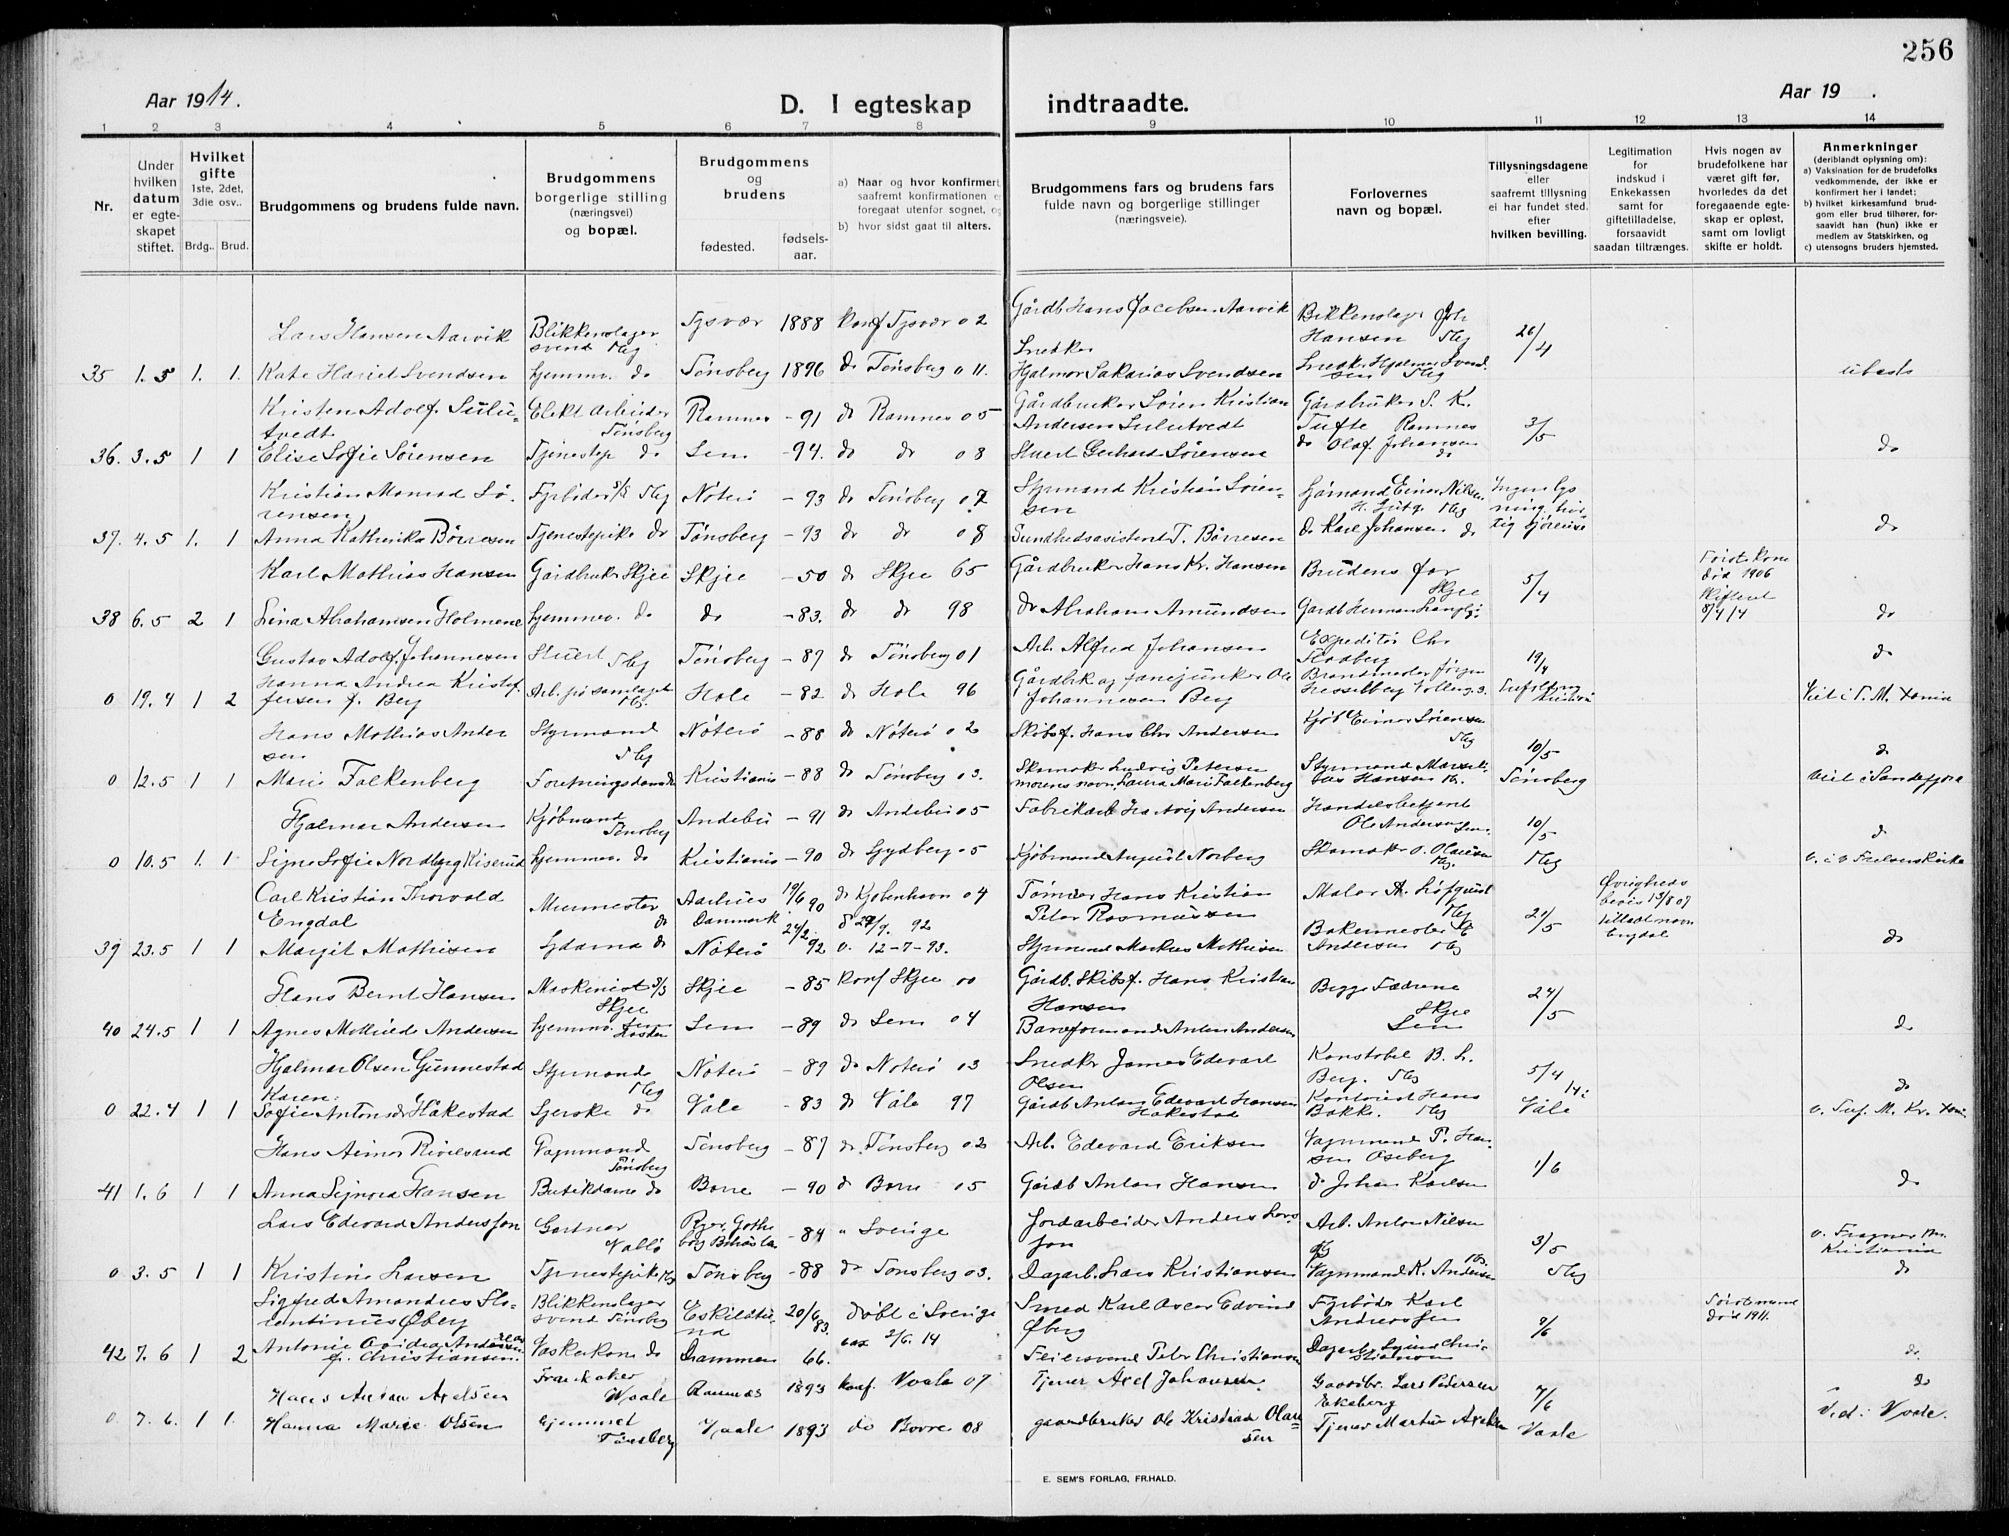 256
Aar 1914.
D. I egteskap indtraadte.
Aar 19 .
1 2 3 4 5 6 7 8 9 10 11 12 13 14
Nr.
Under hvilken datum er egte-skapet stiftet.
Hvilket gifte 1ste, 2det, 3die osv..
Brdg.. Brud.
Brudgommens og brudens fulde navn.
Brudgommens borgerlige stilling (næringsvei) og bopæl.
Brudgommens og brudens
fødested.
fødsels-aar.
a) Naar og hvor konfirmert, saafremt konfirmationen er foregaat utenfor sognet, og
b) hvor sidst gaat til alters.
Brudgommens fars og brudens fars fulde navn og borgerlige stillinger (næringsveie).
Forlovernes navn og bopæl.
Tillysningsdagene eller saafremt tillysning ei har fundet sted, efter hvilken bevilling.
Legitimation for indskud i Enkekassen samt for giftetilladelse, forsaavidt saadan tiltrænges.
Hvis nogen av brudefolkene har været gift før, hvorledes da det foregaaende egte-skap er opløst, samt om lovligt skifte er holdt.
Anmerkninger (deriblandt oplysning om): a) Vaksination for de brudefolks vedkommende, der ikke er konfirmert her i landet; b) hvilket kirkesamfund brud-gom eller brud tilhører, for-saavidt han (hun) ikke er medlem av Statskirken, og c) utensogns bruders hjemsted.
Lars Hansen Aarvik Blikkenslager svend Tbg Tysvær 1888 konf Tysvær 02 Gårdb Hans Jacobsen Aarvik Hansen Tbg 26/4
35 1.5 1. 1. Kate Hariet Svendsen hjemmv. do Tønsberg 1896 do Tønsberg 011. Snedker Hjalmar Sakarias Svendsen Snedk. Hjalmar Svendsen Tbg
Kristen Adolf Sulutvedt Elekt arbeider Tønsberg Ramnes -91 do Ramnes 05 Gårdbruker Søren Kristian Andersen Sulutvedt Gårdbruker S. K. Tufte Ramnes 3/5
36. 3.5 1 1 Elise Sofie Sørensen Tjenestep do Sem -94. do do 08 Stuert Gerhard Sørensen do Olaf Johansen do do
Kristian Monrad Sørensen Fyrbøder Tbg Nøterø -93 do Tønsberg 07 Styrmand Kristian Sørensen Sjømand Einar Nilsen Tbg
37. 4.5 1. 1 Anna Kathrinka Børresen Tjenestepike do Tønsberg -93 do do 08 Sundhedsasistent T. Børresen do Karl Johansen do do
Karl Mathias Hansen Gårdbruker Skjee Skjee -50 do Skjee 65 Gårdbruker Hans Kr. Hansen Brudens far Skjee 5/4 Første kone død 1906
38 6.5 2 1 Lina Abrahamsen Holmene hjemmev. do do -83. do do 98 do Abraham Amundsen Gårdb Herman do
Gustav Adolf Johannesen Stuert Tbg Tønsberg -87 do Tønsberg 01 Arb. Alfred Johansen Expeditør Chr Flodberg 19/4 do
0 19.4 1 2 Hanna Andrea Kristoffersen f. Berg Hole -82 do Hole 96 Johannesen Berg
Hans Mathias Andersen Styrmand Tbg Nøterø -88 do Nøterø 02 Skibsf. Hans Chr Andersen Kjøb Einar Sørensen Tbg 10/5 do
0 12.5 1 1 Marie Falkenberg Forretningsdame Kristiania -88 do Tønsberg 03. Skomaker Ludvig Petersen morens navn Laura Marie Falkenberg Styrmand Hansen Tønsberg Viet i Sandefjord
Hjalmar Andersen Kjøbmand Tønsberg Andebu -91 do Andebu 05 Fabrikarb Hartvig Andersen Handelsbetjent Ole Andersen Sem 10/5 do
0 10.5 1. 1 Signe Sofie Nordberg Kiserud hjemmev. do Kristiania -90 do 05 Kjøbmand August Norberg Skomaker O. Olausen Tbg
Carl Kristian Thorvald Engdal Murmester do Aarhus Danmark 19/6 90 do Kjøbenhavn 04 Tømrer Hans Kristian Peter Rasmussen Maler A. Løfquist Tbg 20/5 Øvrigheds bevis 13/8 07 tilladt navn Engdal
39 23.5 1 1 Margit Mathisen Sydame do Nøterø 24/2 92 v. 12-7-93. Styrmand Markus Mathisen Bakermester E Andersen Tbg do
Hans Bernt Hansen Maskinist Skjee Skjee -85 konf Skjee 00 Gårdb. Skibsf. Hans Kristian Hansen Begge Fædrene Skjee Sem 24/5
40 24.5 1 1 Agnes Mathilde Andersen hjemmv. Sem -89 do Sem 04 Baneformand Anton Andersen do
Hjalmar Olsen Gunnestad Styrmand Tbg Nøterø -89 do Nøterø 03 Snedker James Edvard Olsen Konstabel B. L. Berg. Tbg 5/4 do
0 22.4 1 1 Karen Sofie Antonsdr Håkestad Syerske do Våle -83 do Våle 97 Gårdb Anton Edvard Hansen Håkestad Kontorist Hans Bakke. Tbg Våle
Hans Aimar Rivelsrud Vognmand Tønsberg Tønsberg -87 do Tønsberg 02 Arb. Edevard Eriksen Vognmand P. Hansen Oseberg 1/6
41 1.6 1 1 Anna Signora Hansen Butikdame do Borre -90 do Borre 05 Gårdb Anton Hansen do Johan Karlsen do
Lars Edvard Andersson Gartner Vallø -84 " Sverige Jordarbeider Anders Larsson Arb. Anton Nilsen 3/5 Kristiania
0 3.5 1 1 Kristine Larsen Tjenestepike Tbg Tønsberg -88 do Tønsberg 03. Dagarb. Lars Kristiansen Vognmand K. Andersen Tbg Tbg do
Sigfred Amandus Florentinius Øberg Blikkenslager svend Tønsberg Eskilstuna 20/6 83. Døbt i Sverige Smed Karl Oscar Edvind Øberg Fyrbøder Karl Andreassen 7/6 Første mand død 1911.
42 7.6 1 2 Antonie Ovidia Andersen f. Christiansen. Vaskerkone do Drammen 66. vac 2/6. 14 Feiersvend Peter Christiansen do.
Hans Anton Axelsen Vaale Ramnæs 1893 konf. Vaale 07 Tjener Axel Johansen Gaardbr. Lars Pedersen Ekeberg 7/6 do
0. 7.6. 1 1. Hanna Marie Olsen hjemmet Tønsberg Vaale 1893 do Borre 08 gaardbruker Ole Kristian Olausen Tjener Martin Axelsen Vaale Vied i Vaale.
E. SEM'S FORLAG, FR.HALD.